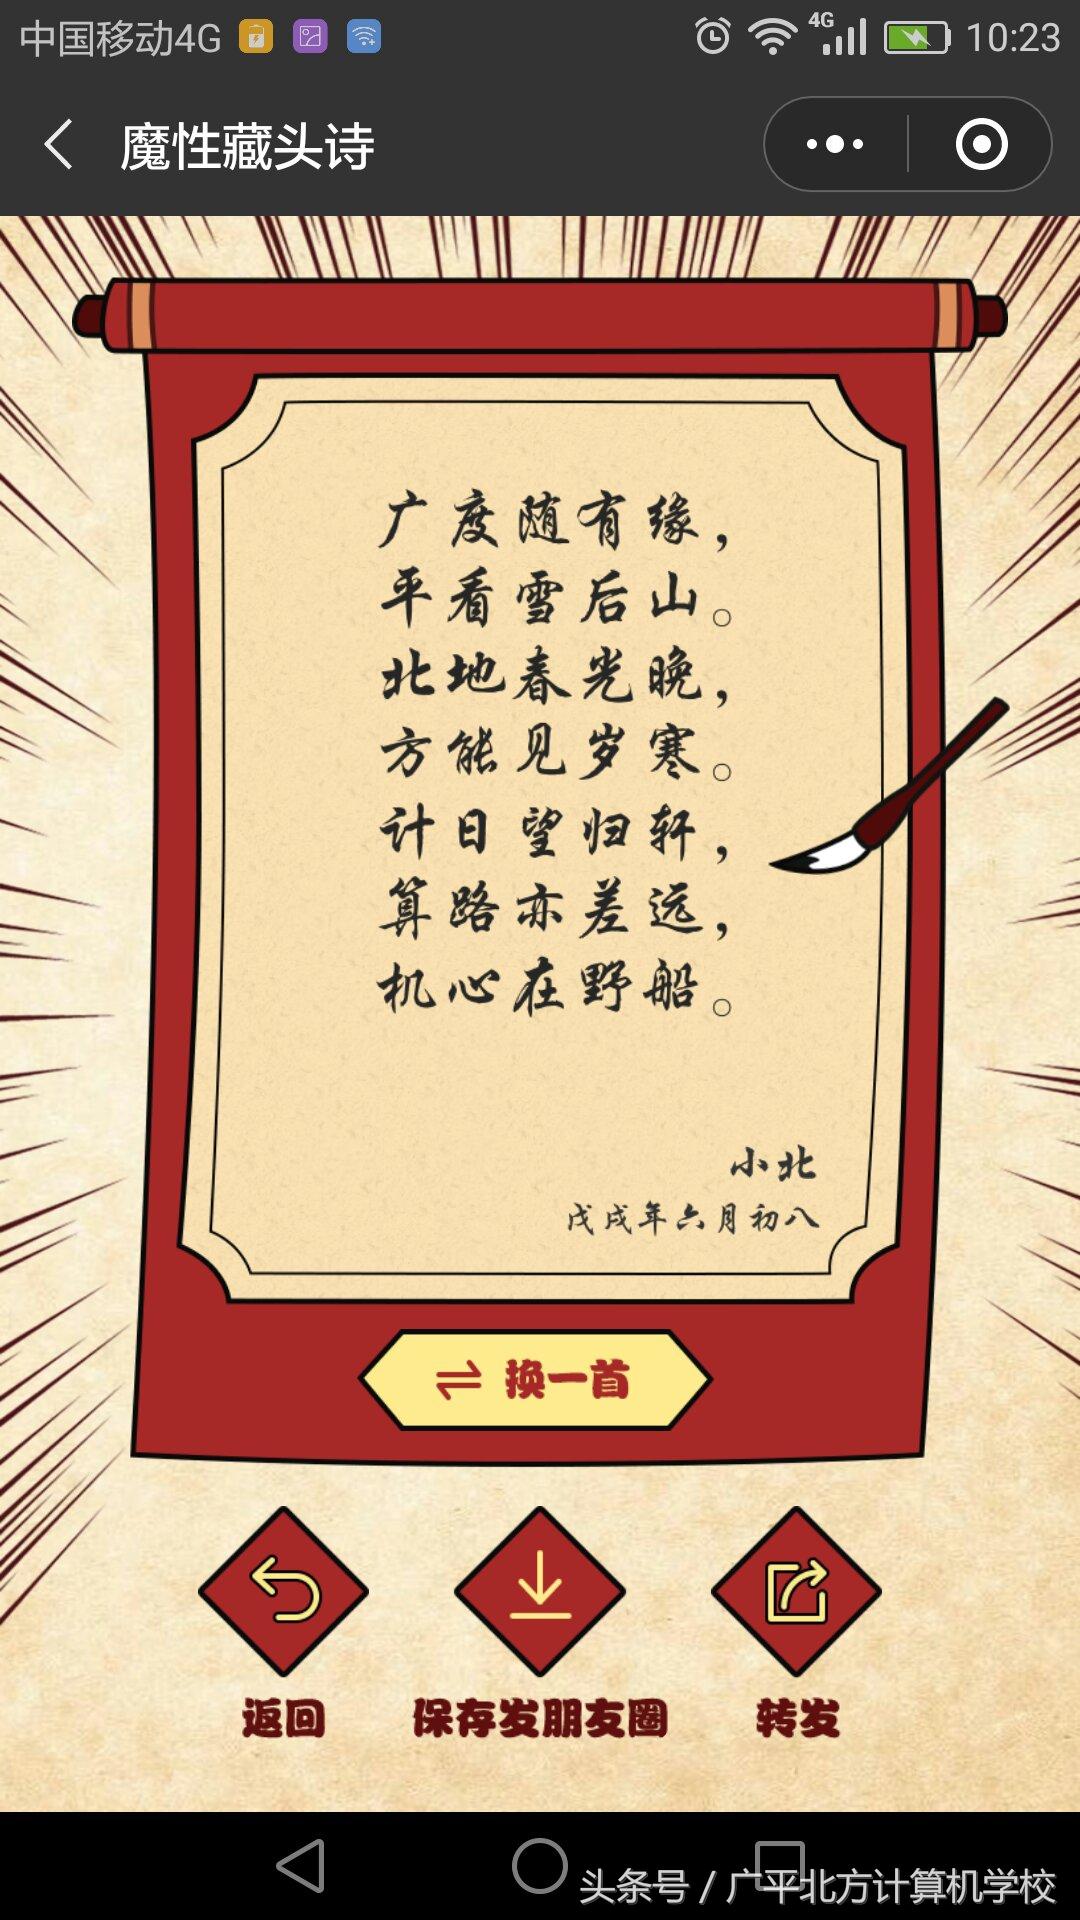 中国移动4G
4G
10:23
魔性藏头诗
广度随有缘，
平看雪后山。
北地春光晚，
方能见岁寒。
计日望归轩，
算路亦差远，
机心在野船。
小北
戊戌年六月初八
换一首
返回
保存发朋友圈
转发
头条号 / 广平北方计算机学校